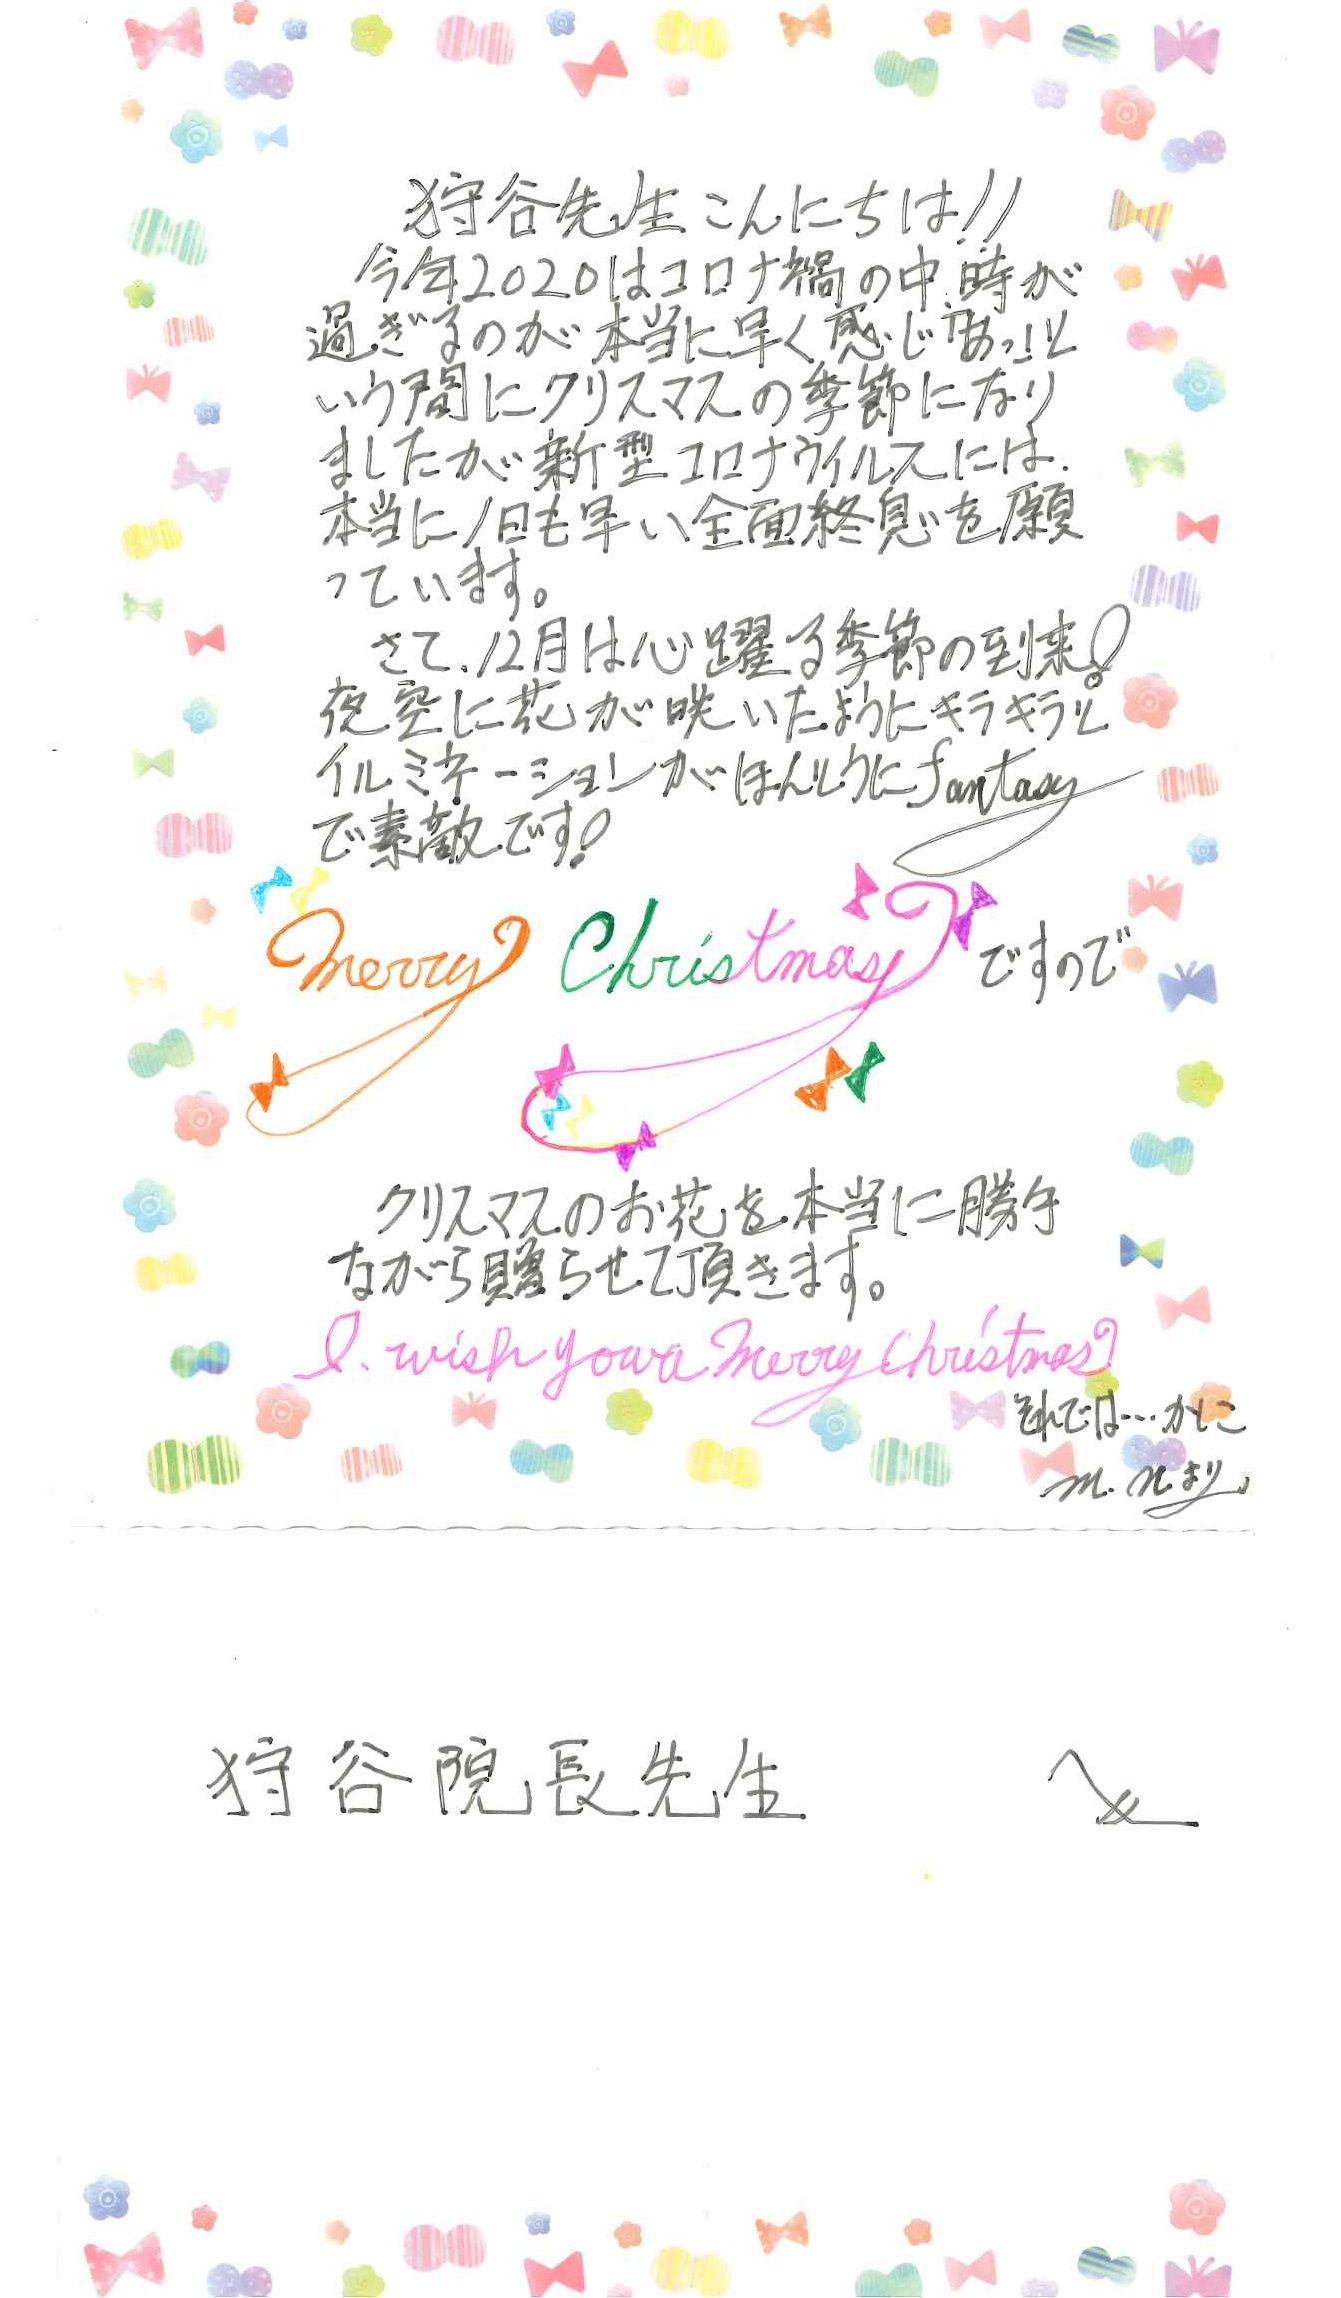 狩谷先生こんにちは!!
今年2020はコロナ禍の中、時が
過ぎるのが本当に早く感じ「あっ」と
いう間にクリスマスの季節になり
ましたが新型コロナウイルスには、
本当に1日も早い全面終息を願
っています。
さて、12月は心躍る季節の到来!
夜空に花が咲いたようにキラキラと
イルミネーションがほんとうにfantasy
で素敵です!
Merry Christmas ですので
クリスマスのお花を本当に勝手
ながら贈らせて頂きます。
I. wish you a Merry Christmas
それでは…かしこ
M. Nより
狩谷院長先生 へ